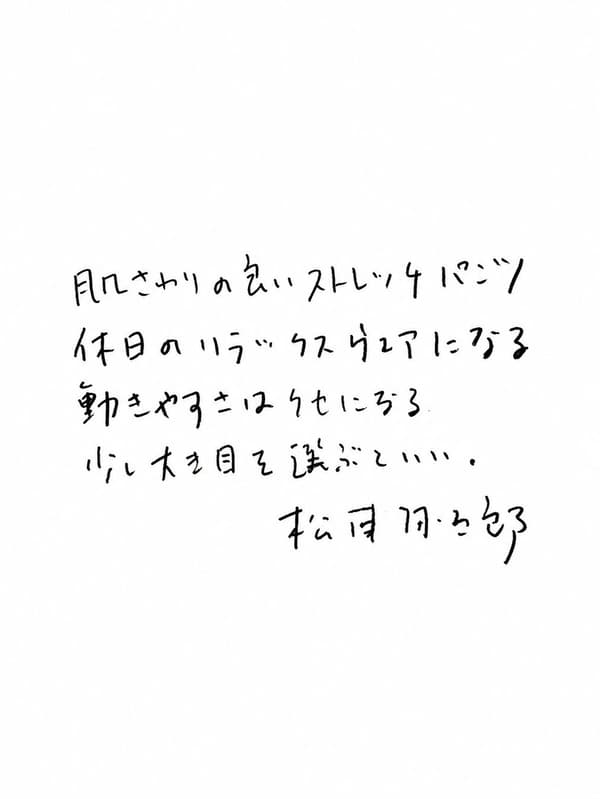 肌さわりの良いストレッチパンツ
休日のリラックスウェアになる
動きやすさはクセになる
少し大き目を選ぶといい。
松浦弥太郎